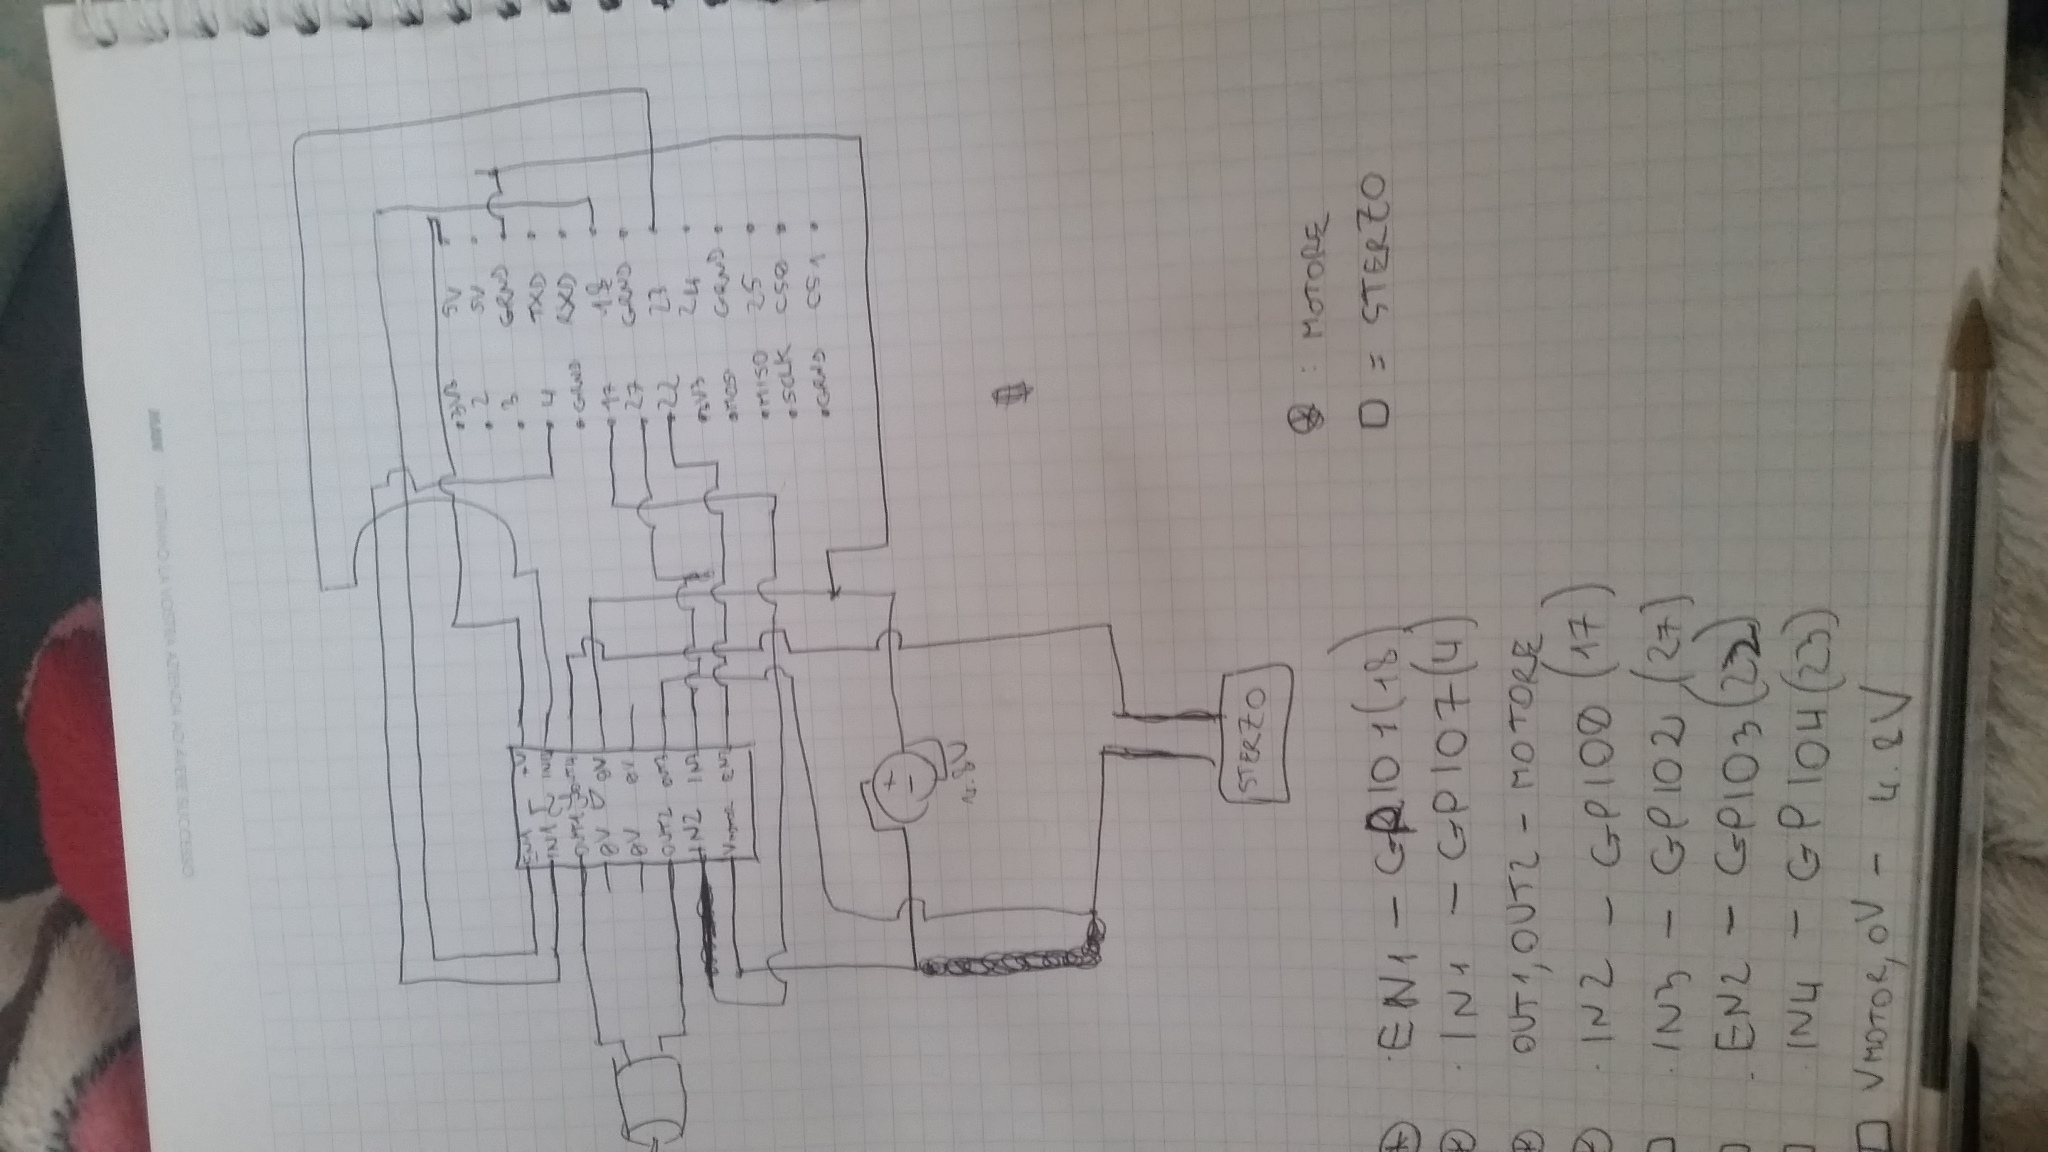 AIUTIAMO LA VOSTRA AZIENDA AD AVERE SUCCESSO
EN1 +V
IN1
OUT1 OUT4
0V 0V
0V 0V
OUT2 OUT3
IN2 IN3
VMOTOR EN2
3V3 5V
2 5V
3 GRND
4 TXD
GRND RXD
17 18
27 GRND
22 23
3V3 24
MOSI GRND
MISO 25
SCLK CS0
GRND CS1
+
-
4.8V
STERZO
: MOTORE
= STERZO
EN1 - GPIO1(18)
IN1 - GPIO7(4)
OUT1, OUT2 - MOTORE
IN2 - GPIO0 (17)
IN3 - GPIO2 (27)
EN2 - GPIO3(22)
IN4 - GPIO4(23)
VMOTOR, 0V - 4.8V